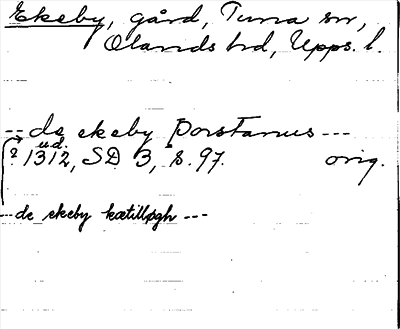 Ekeby, gård, Tuna sn,
Olands hd, Upps. l.
--- de ekeby þorstanus ---
? u.d.
1312, SD 3, s. 97. orig.
--- de ekeby kætilløgh ---